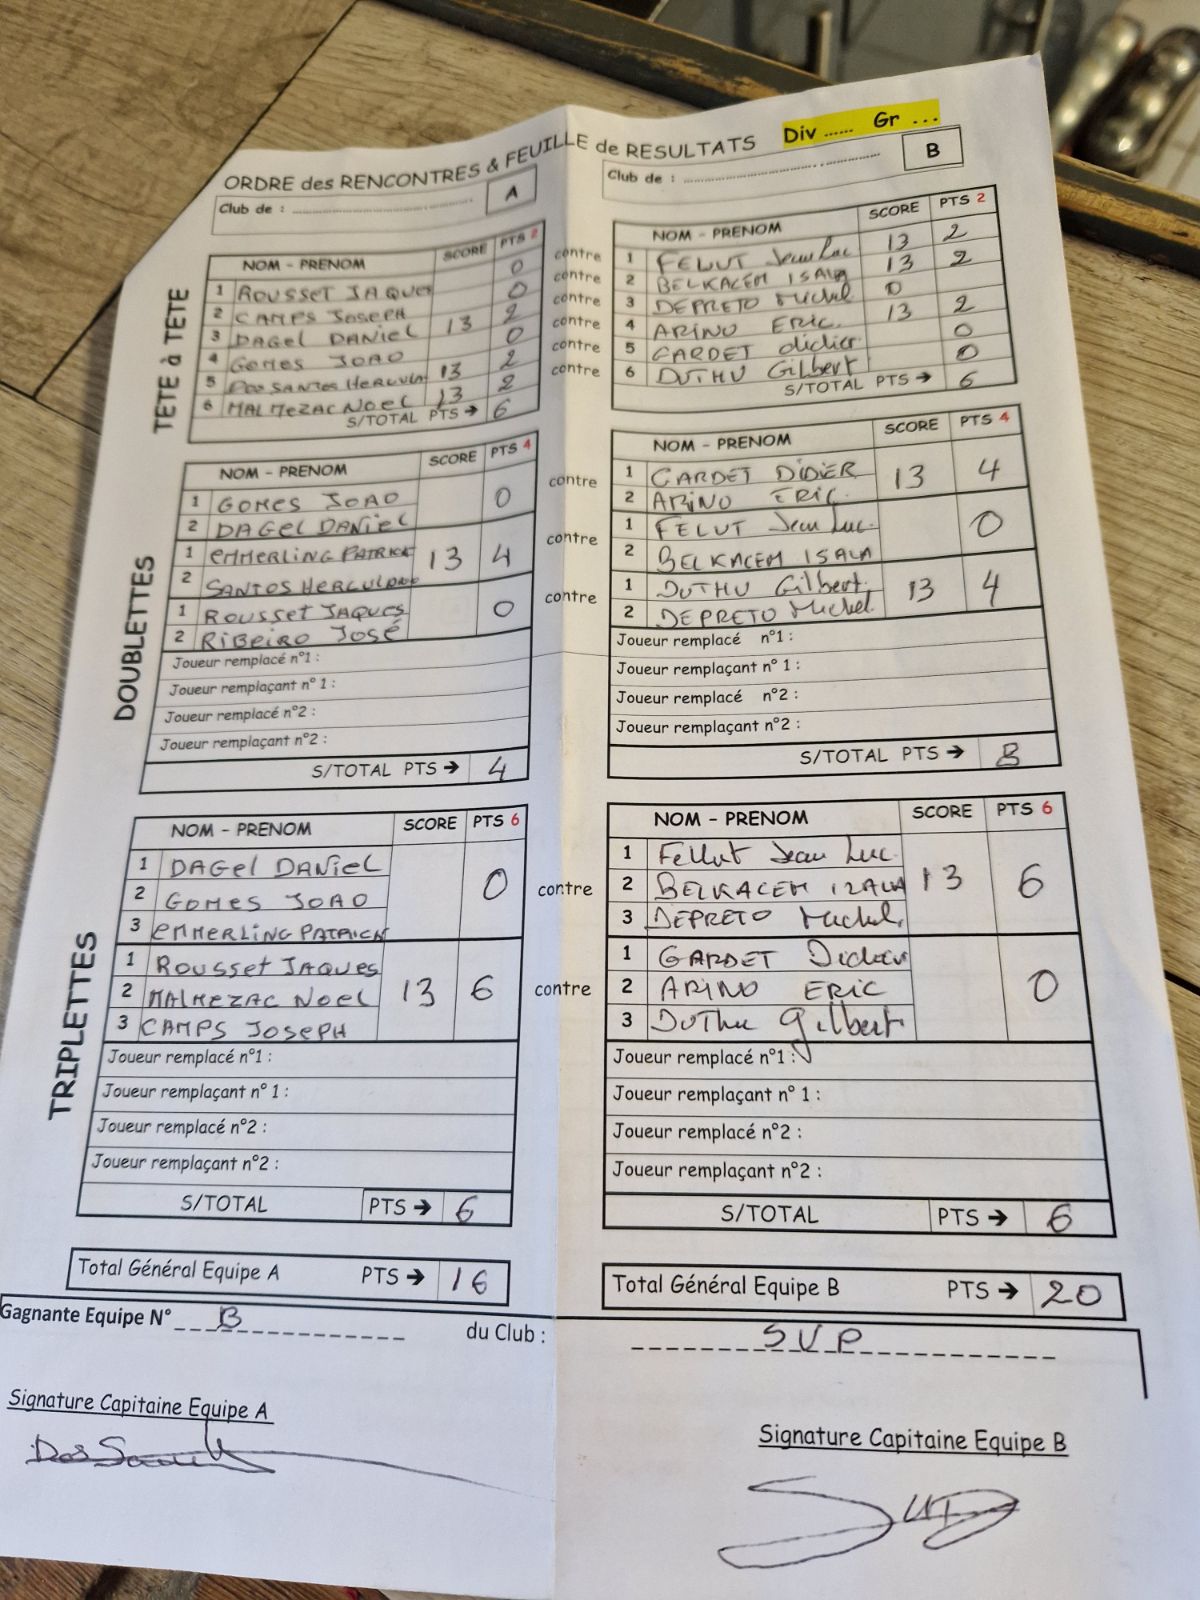 Div ...... Gr ...
ORDRE des RENCONTRES & FEUILLE de RESULTATS
Club de : A
TETE à TETE
NOM - PRENOM SCORE PTS 2
1 ROUSSET JAQUES 0
2 CAMPS JOSEPH 0
3 DAGEL DANIEL 13 2
4 GOMES JOAO 0
5 DOS SANTOS HERCULA 13 2
6 MALMEZAC NOEL 13 2
S/TOTAL PTS → 6
contre
contre
contre
contre
contre
contre
Club de : B
NOM - PRENOM SCORE PTS 2
1 FELUT Jean Luc 13 2
2 BELKACEM ISALA 13 2
3 DEPRETO Michel 0
4 ARINO ERIC. 13 2
5 GARDET didier 0
6 DUTHU Gilbert 0
S/TOTAL PTS → 6
DOUBLETTES
NOM - PRENOM SCORE PTS 4
1 GOMES JOAO 0
2 DAGEL DANIEL
1 EMMERLING PATRICK 13 4
2 SANTOS HERCULANO
1 ROUSSET JAQUES 0
2 RIBEIRO JOSÉ
Joueur remplacé n°1 :
Joueur remplaçant n° 1 :
Joueur remplacé n°2 :
Joueur remplaçant n°2 :
S/TOTAL PTS → 4
contre
contre
contre
NOM - PRENOM SCORE PTS 4
1 GARDET DIDIER 13 4
2 ARINO ERIC.
1 FELUT Jean Luc. 0
2 BELKACEM ISALA
1 DUTHU Gilbert. 13 4
2 DEPRETO Michel
Joueur remplacé n°1 :
Joueur remplaçant n° 1 :
Joueur remplacé n°2 :
Joueur remplaçant n°2 :
S/TOTAL PTS → 8
TRIPLETTES
NOM - PRENOM SCORE PTS 6
1 DAGEL DANIEL 0
2 GOMES JOAO
3 EMMERLING PATRICK
1 ROUSSET JAQUES 13 6
2 MALMEZAC NOEL
3 CAMPS JOSEPH
Joueur remplacé n°1 :
Joueur remplaçant n° 1 :
Joueur remplacé n°2 :
Joueur remplaçant n°2 :
S/TOTAL PTS → 6
contre
contre
NOM - PRENOM SCORE PTS 6
1 Fellut Jean Luc. 13 6
2 BELKACEM IZALA
3 DEPRETO Michel.
1 GARDET Didier 0
2 ARINO ERIC
3 DUTHU Gilbert
Joueur remplacé n°1 :
Joueur remplaçant n° 1 :
Joueur remplacé n°2 :
Joueur remplaçant n°2 :
S/TOTAL PTS → 6
Total Général Equipe A PTS → 16
Total Général Equipe B PTS → 20
Gagnante Equipe N° B du Club : S.V.P
Signature Capitaine Equipe A
Signature Capitaine Equipe B